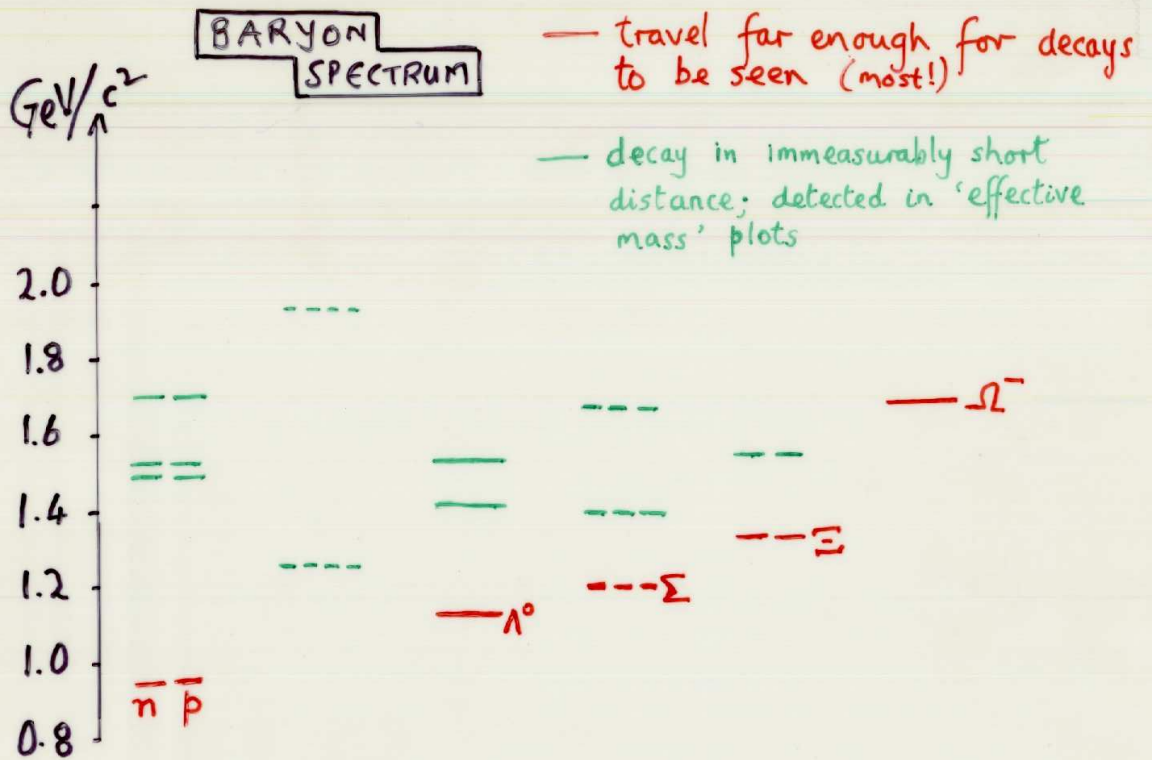 BARYON
SPECTRUM
— travel far enough for decays
to be seen (most!)
— decay in immeasurably short
distance; detected in 'effective
mass' plots
GeV/c²
2.0
1.8
1.6
1.4
1.2
1.0
0.8
n p
Λ⁰
Σ
Ξ
Ω⁻